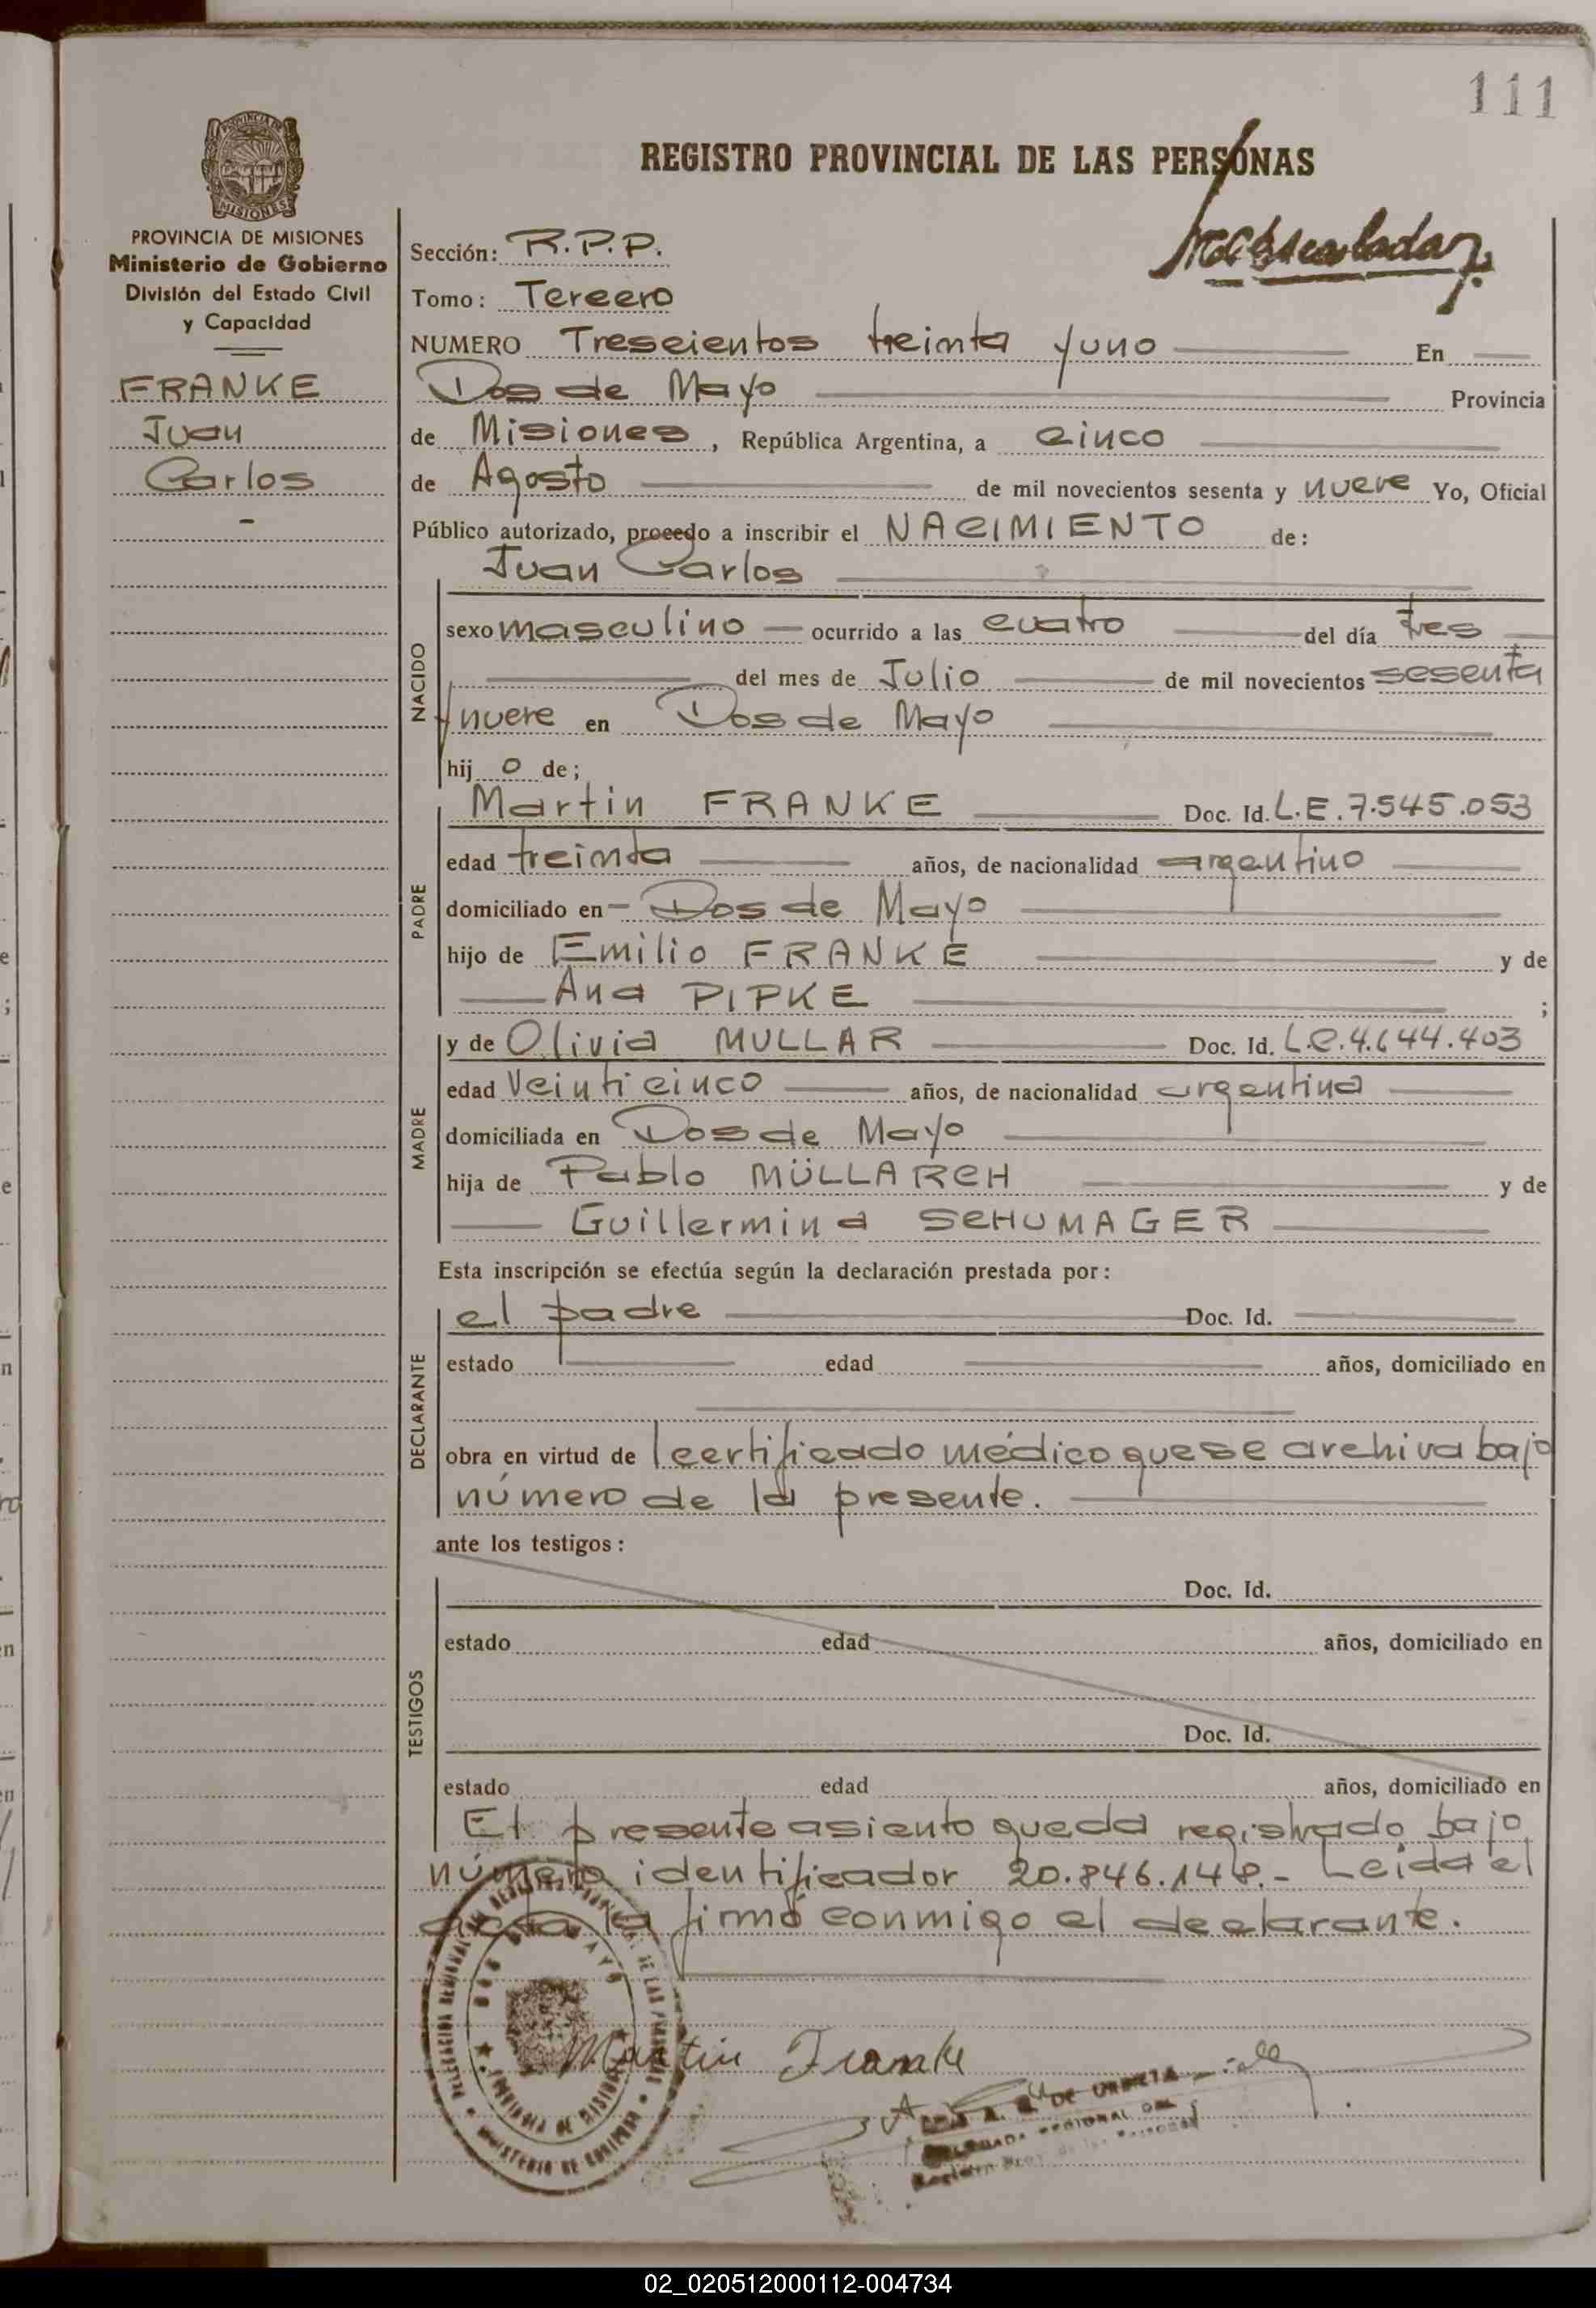 111
REGISTRO PROVINCIAL DE LAS PERSONAS
PROVINCIA DE
MISIONES
PROVINCIA DE MISIONES
Ministerio de Gobierno
División del Estado Civil
y Capacidad
FRANKE
Juan
Carlos
-
Sección: R.P.P.
Tomo: Tercero
NUMERO Trescientos treinta y uno En
Dos de Mayo Provincia
de Misiones, República Argentina, a cinco
de Agosto de mil novecientos sesenta y nueve Yo, Oficial
Público autorizado, procedo a inscribir el NACIMIENTO de:
Juan Carlos
NACIDO
sexo masculino ocurrido a las cuatro del día tres
del mes de Julio de mil novecientos sesenta
y nueve en Dos de Mayo
hij o de;
PADRE
Martin FRANKE Doc. Id. L.E. 7.545.053
edad treinta años, de nacionalidad argentino
domiciliado en Dos de Mayo
hijo de Emilio FRANKE y de
Ana PIPKE ;
MADRE
y de Olivia MULLAR Doc. Id. L.C. 4.644.403
edad Veinticinco años, de nacionalidad argentina
domiciliada en Dos de Mayo
hija de Pablo MÜLLARCH y de
Guillermina SCHUMAGER
Esta inscripción se efectúa según la declaración prestada por:
DECLARANTE
el padre Doc. Id.
estado edad años, domiciliado en
obra en virtud de l certificado médico que se archiva bajo
número de la presente.
ante los testigos:
TESTIGOS
Doc. Id.
estado edad años, domiciliado en
Doc. Id.
estado edad años, domiciliado en
El presente asiento queda registrado bajo
número identificador 20.846.148.- Leida el
acta la firmó conmigo el declarante.
Martin Franke
DE LAS
DOS DE MAYO
PROVINCIA DE MISIONES
MINISTERIO DE GOBIERNO
02_020512000112-004734